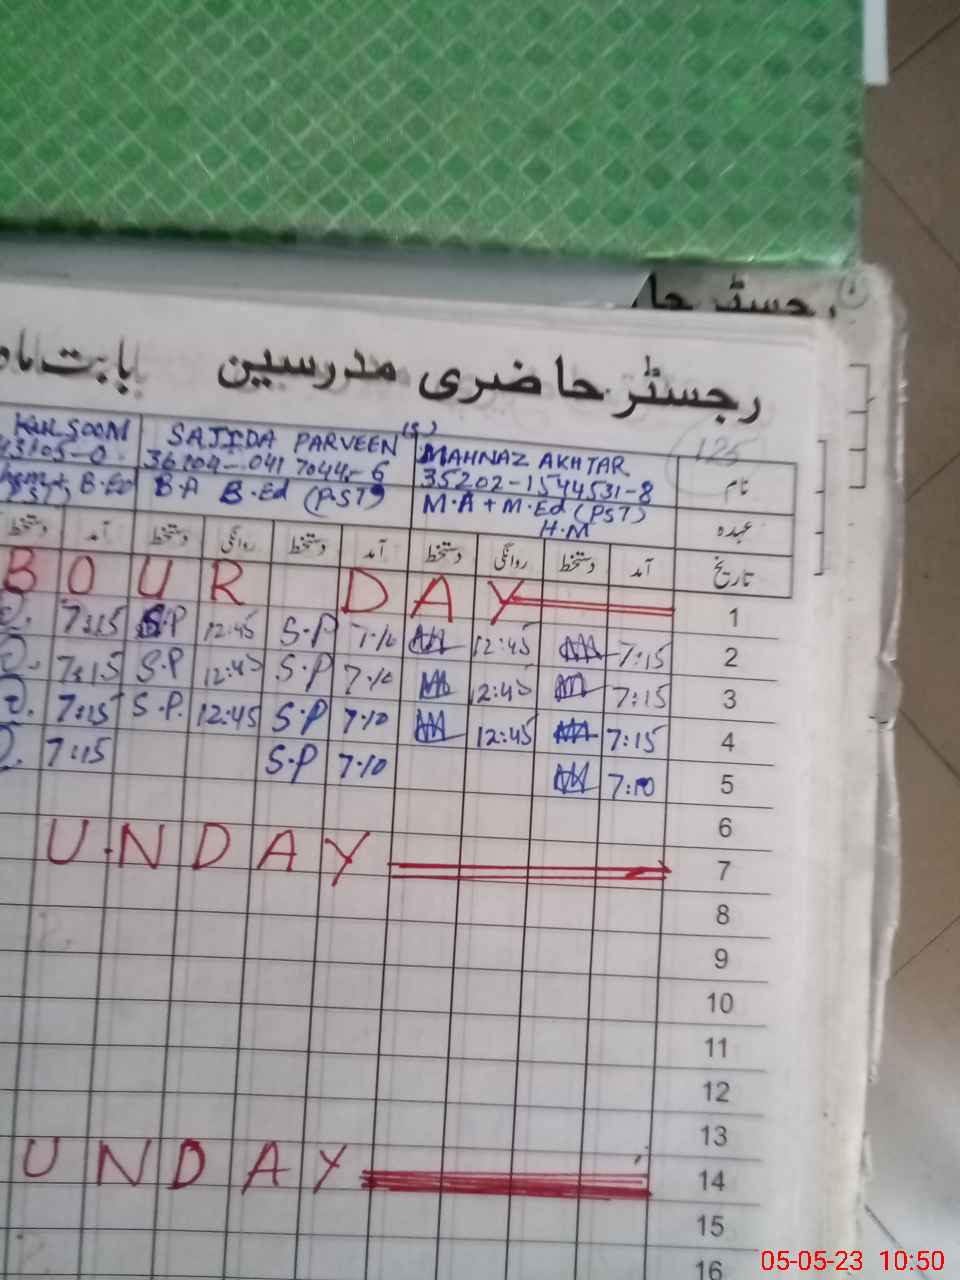 رجسٹر حا
رجسٹر حاضری مدرسین بابت ماہ
125
KULSOOM SAJIDA PARVEEN (S) MAHNAZ AKHTAR نام
43105-0 36104-0417044-6 35202-1544531-8
B.Ed B.A B.Ed (PST) M.A + M.Ed (PST) عہدہ
H.M
دستخط آمد دستخط روانگی دستخط آمد دستخط روانگی دستخط آمد تاریخ
BOUR DAY 1
7:15 S.P 12:45 S.P 7:10 12:45 7:15 2
7:15 S.P 12:45 S.P 7:10 12:45 7:15 3
7:15 S.P. 12:45 S.P 7:10 12:45 7:15 4
7:15 S.P 7:10 7:10 5
6
UNDAY 7
8
9
10
11
12
13
UNDAY 14
15
16
05-05-23 10:50